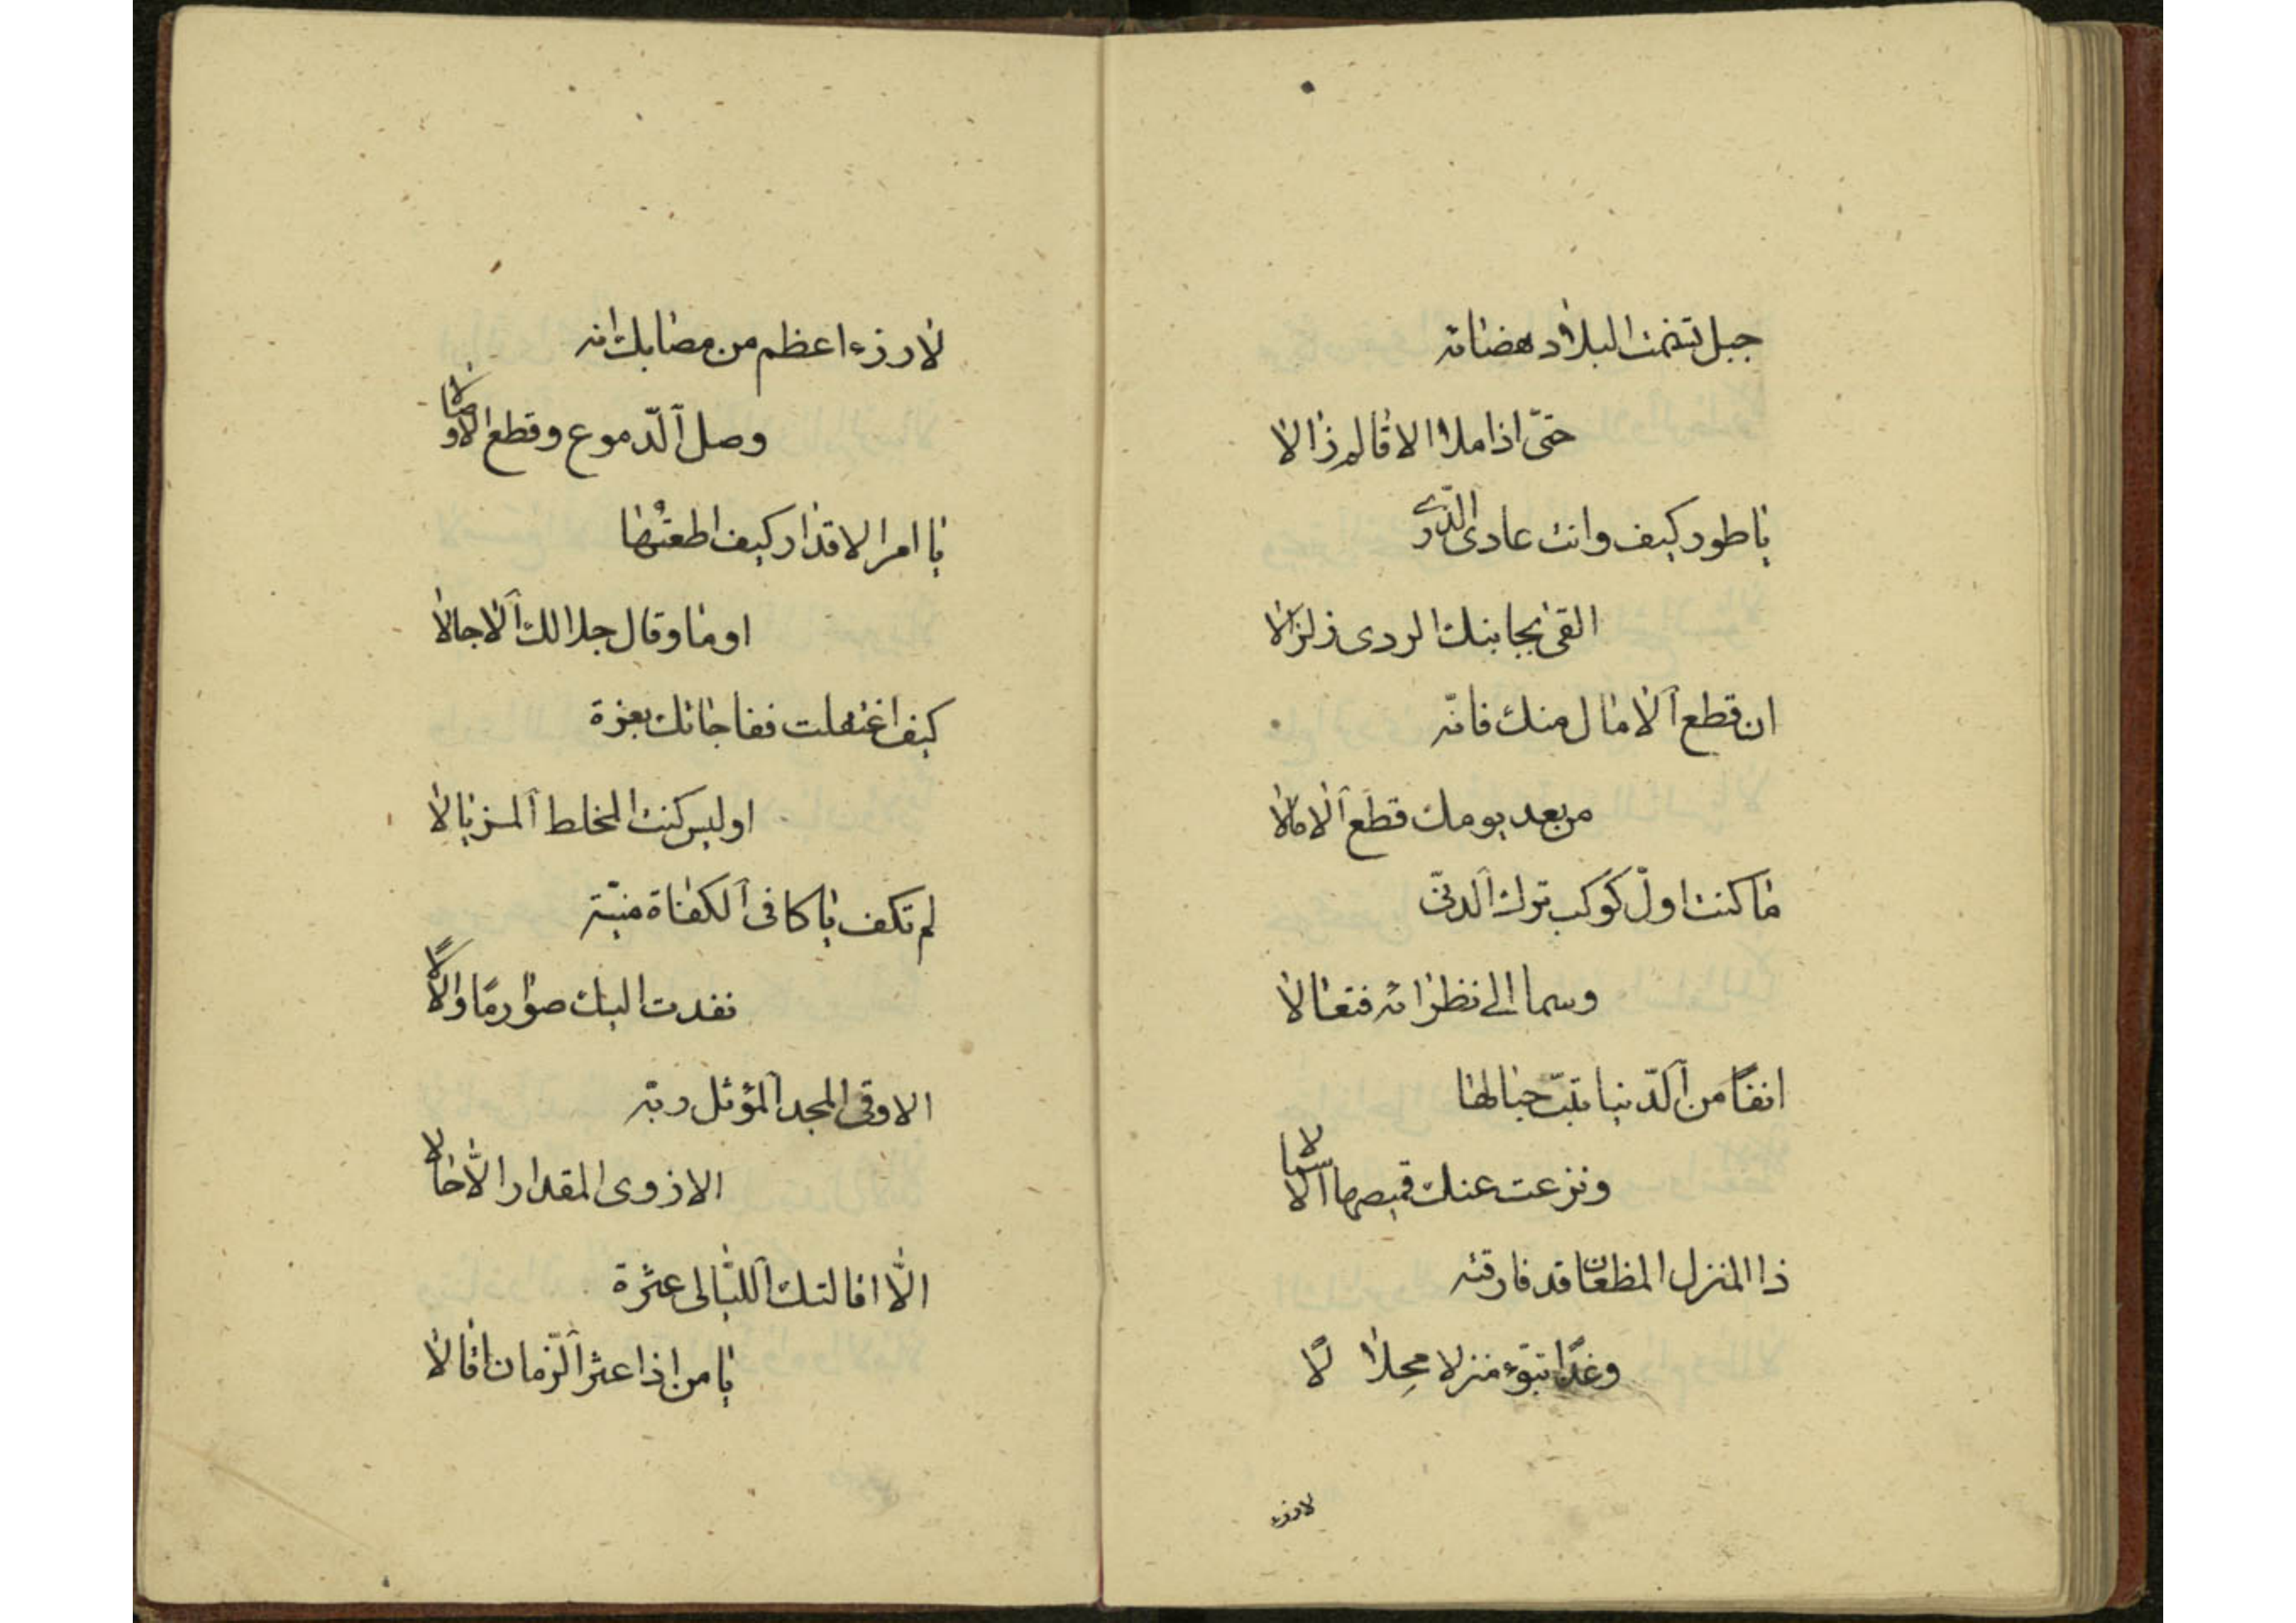 جبل تسنمت البلاد هضابه
حتّى اذا ملا الاقالم زالا
ياطود كيف وانت عادى الذرى
القى بجانبك الردى زلزالا
ان قطع الامال منك فانّه
من بعد يومك قطع الامالا
ما كنت اولّ كوكب ترك الدنى
وسما الى نظرائه فتعالا
انفًا من الدّنيا بتتّ حبالها
ونزعت عنك قميصها الاسمالا
ذا المنزل المظعان قد فارقته
وغدًا تبوّء منزلا محلالًا
لارزء
لارزء اعظم من مصابك انه
وصل الدّموع وقطع الاوصالا
يا امر الاقدار كيف اطعتها
اوما وقاك جلالك الاجالا
كيف اغتفلت ففاجاتك بعزة
اوليس كنت المخلط المزيالا
لم تكف ياكافى الكفاة منيّة
نفدت اليك صوارمًا والاًلا
الا وقى المجد المؤثل ربّه
الا زوى المقدار الّاحالا
الّا اقالتك الليّالى عثرة
يا من اذا عثر الزّمان اقالا